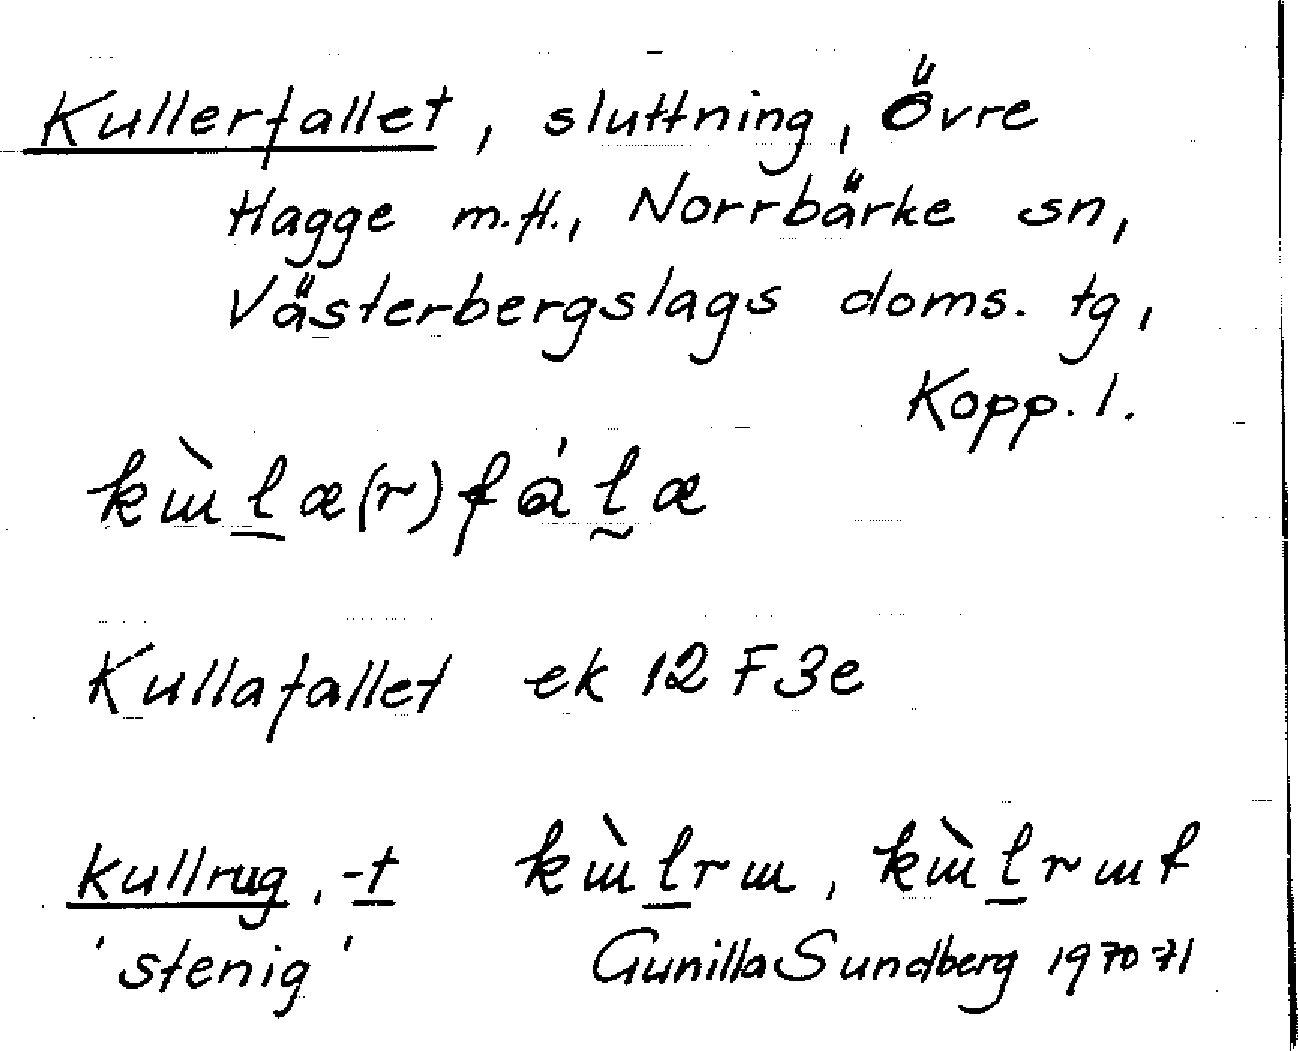 Kullerfallet, sluttning, Övre
Hagge m.fl., Norrbärke sn,
Västerbergslags doms. tg,
Kopp. l.
kɯ̀l̲æ(r)fál̰æ
Kullafallet ek 12 F3e
kullrug, -t kɯ̀l̲rɯ, kɯ̀l̲rɯt
'stenig' Gunilla Sundberg 1970-71